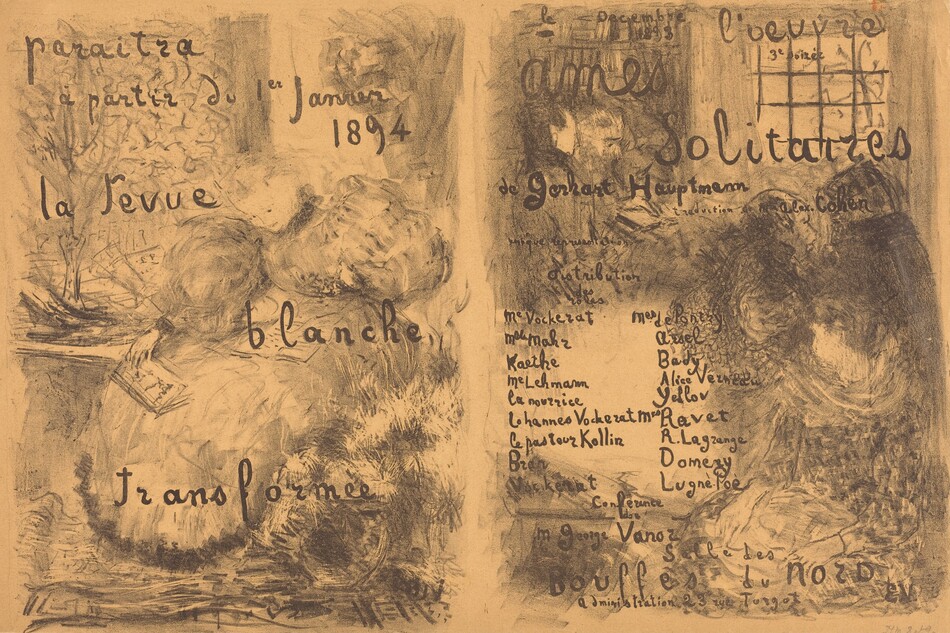 paraitra
à partir du 1er Janvier
1894
la revue
blanche
transformée
EV
le Decembre
1893
l'oeuvre
3e soirée
âmes
Solitaires
de Gerhart Hauptmann
traduction de Mr alex. Cohen
unique représentation
distribution
des
roles
Me Vockerat Mes de Pontry
Melle Mahr Arsel
Kaethe Bady
Me Lehmann Alice Verneau
la nourrice Yellov
Iohannes Vockerat Mrs Ravet
le pasteur Kollin R. Lagrange
Bran Domeny
Vockerat Lugné Poe
Conférence
de
M George Vanor
Salle des
bouffes du nord
administration 23 rue Turgot
EV